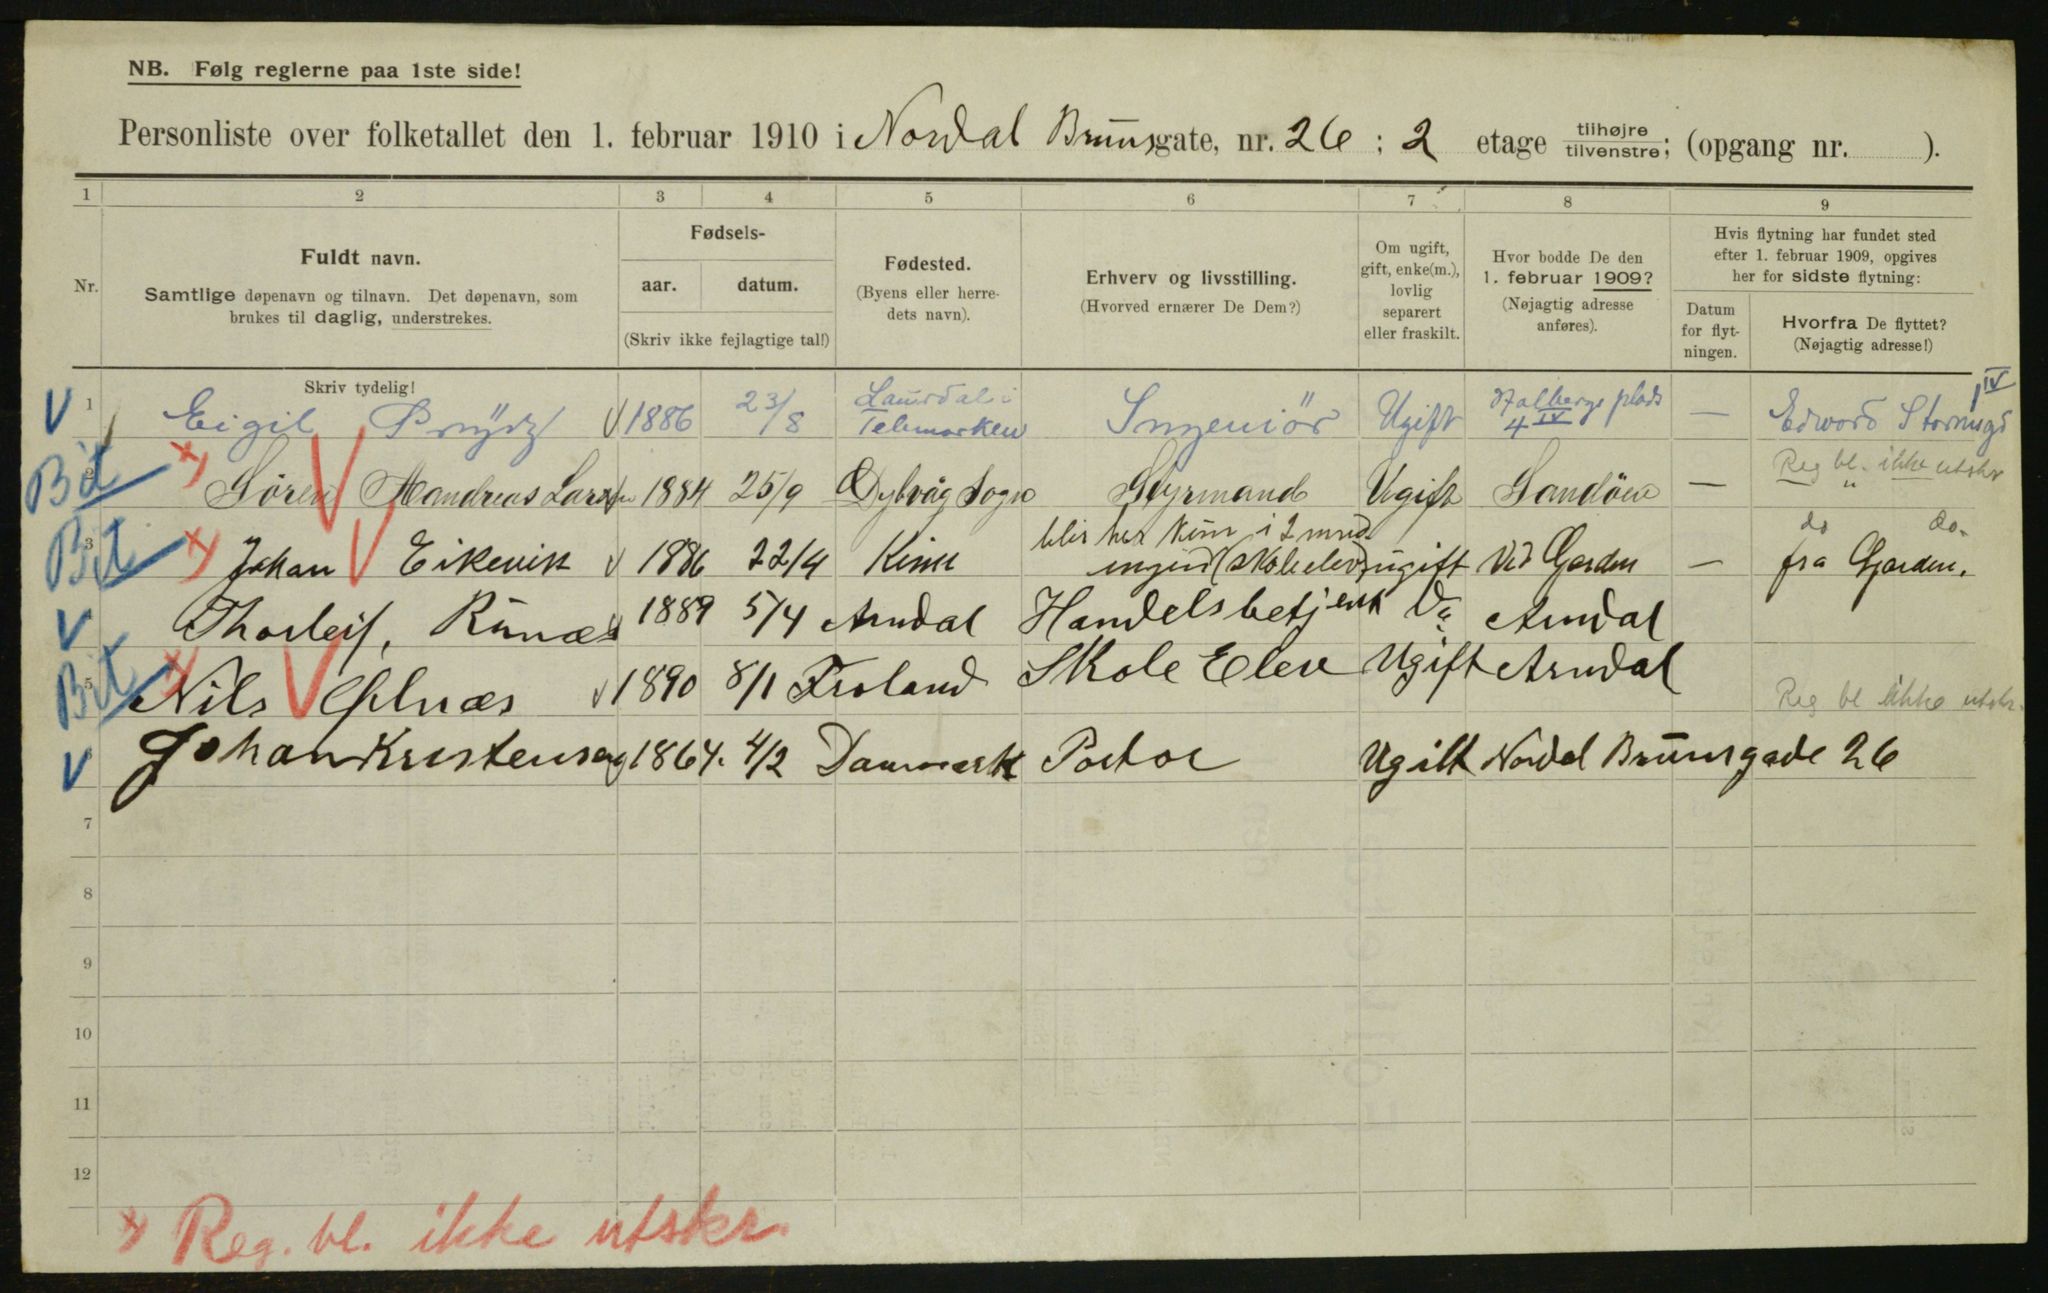 NB. Følg reglerne paa 1ste side!
Personliste over folketallet den 1. februar 1910 i Nordal Brunsgate, nr. 26 ; 2 etage tilhøjre/tilvenstre; (opgang nr. ).
1 2 3 4 5 6 7 8 9
Nr.
Fuldt navn.
Samtlige døpenavn og tilnavn. Det døpenavn, som
brukes til daglig, understrekes.
Skriv tydelig!
Fødsels-
aar. datum.
(Skriv ikke fejlagtige tal!)
Fødested.
(Byens eller herre-
dets navn).
Erhverv og livsstilling.
(Hvorved ernærer De Dem?)
Om ugift,
gift, enke(m.),
lovlig
separert
eller fraskilt.
Hvor bodde De den
1. februar 1909?
(Nøjagtig adresse
anføres).
Hvis flytning har fundet sted
efter 1. februar 1909, opgives
her for sidste flytning:
Datum
for flyt-
ningen.
Hvorfra De flyttet?
(Nøjagtig adresse!)
V 1 Eigil Prydz V 1886 23/8 Laurdal i Telemarken Ingeniör Ugift Holbergs plads 4 IV — Edvard Stormsgd 1 IV
Bit 2 x) Sören Mandreas Larsen 1884 25/9 Dybvåg Sogn Styrmand Ugift Sandöen — Reg bl. ikke utskr
blir her kun i 2 mnd.
Bit 3 x) Johan Eikevik V 1886 22/4 Kinn (skoleelev) ugift Ved Garden — do do. fra Garden.
V Thorleif, Runæs 1889 5/4 Arndal Handelsbetjent Do Arndal
Bit 5 x) Nils V 1890 8/1 Froland Skole Elev Ugift Arndal Reg bl ikke utskr.
V Johan Kristensen 1864. 4/2 Danmark Portør Ugift Nordal Brunsgade 26
7
8
9
10
11
12
x) Reg. bl. ikke utskr.